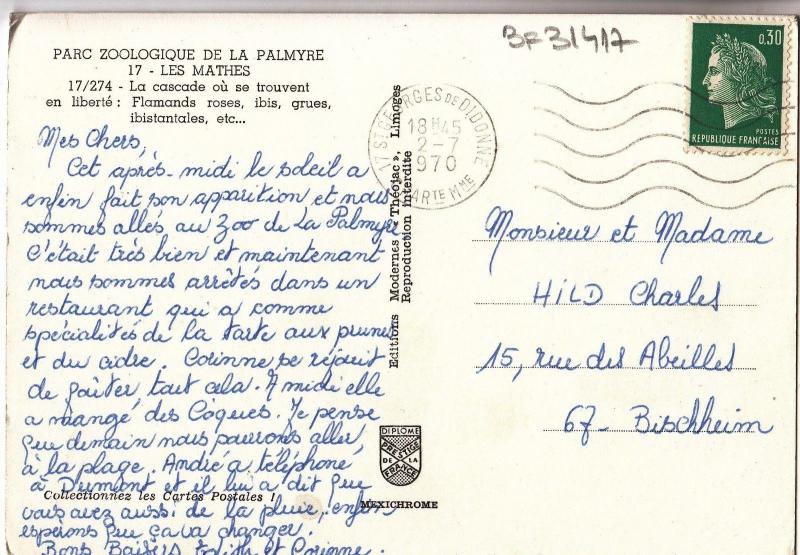 BF31417
PARC ZOOLOGIQUE DE LA PALMYRE
17 - LES MATHES
17/274 - La cascade où se trouvent
en liberté : Flamands roses, ibis, grues,
ibistantales, etc...
Mes Chers,
Cet après-midi le soleil a
enfin fait son apparition et nous
sommes allés au Zoo de La Palmyre
C'était très bien et maintenant
nous sommes arrêtés dans un
restaurant qui a comme
spécialités de la tarte aux prunes
et du cidre. Corinne se réjouit
de goûter tout cela. A midi elle
a mangé des Coques. Je pense
que demain nous pourrons aller
à la plage. André a téléphoné
à Dumont et il lui a dit que
vous avez aussi de la pluie, enfin
espérons que ça va changer.
Bons Baisers Edith et Corinne.
Collectionnez les Cartes Postales !
Editions Modernes « Théojac », Limoges
Reproduction interdite
DIPLOME
PRESTIGE
DE LA
FRANCE
MEXICHROME
17 ST GEORGES DE DIDONNE
18H45
2-7
1970
CHARTE MME
0,30
POSTES
REPUBLIQUE FRANÇAISE
Monsieur et Madame
HILD Charles
15, rue des Abeilles
67- Bischheim